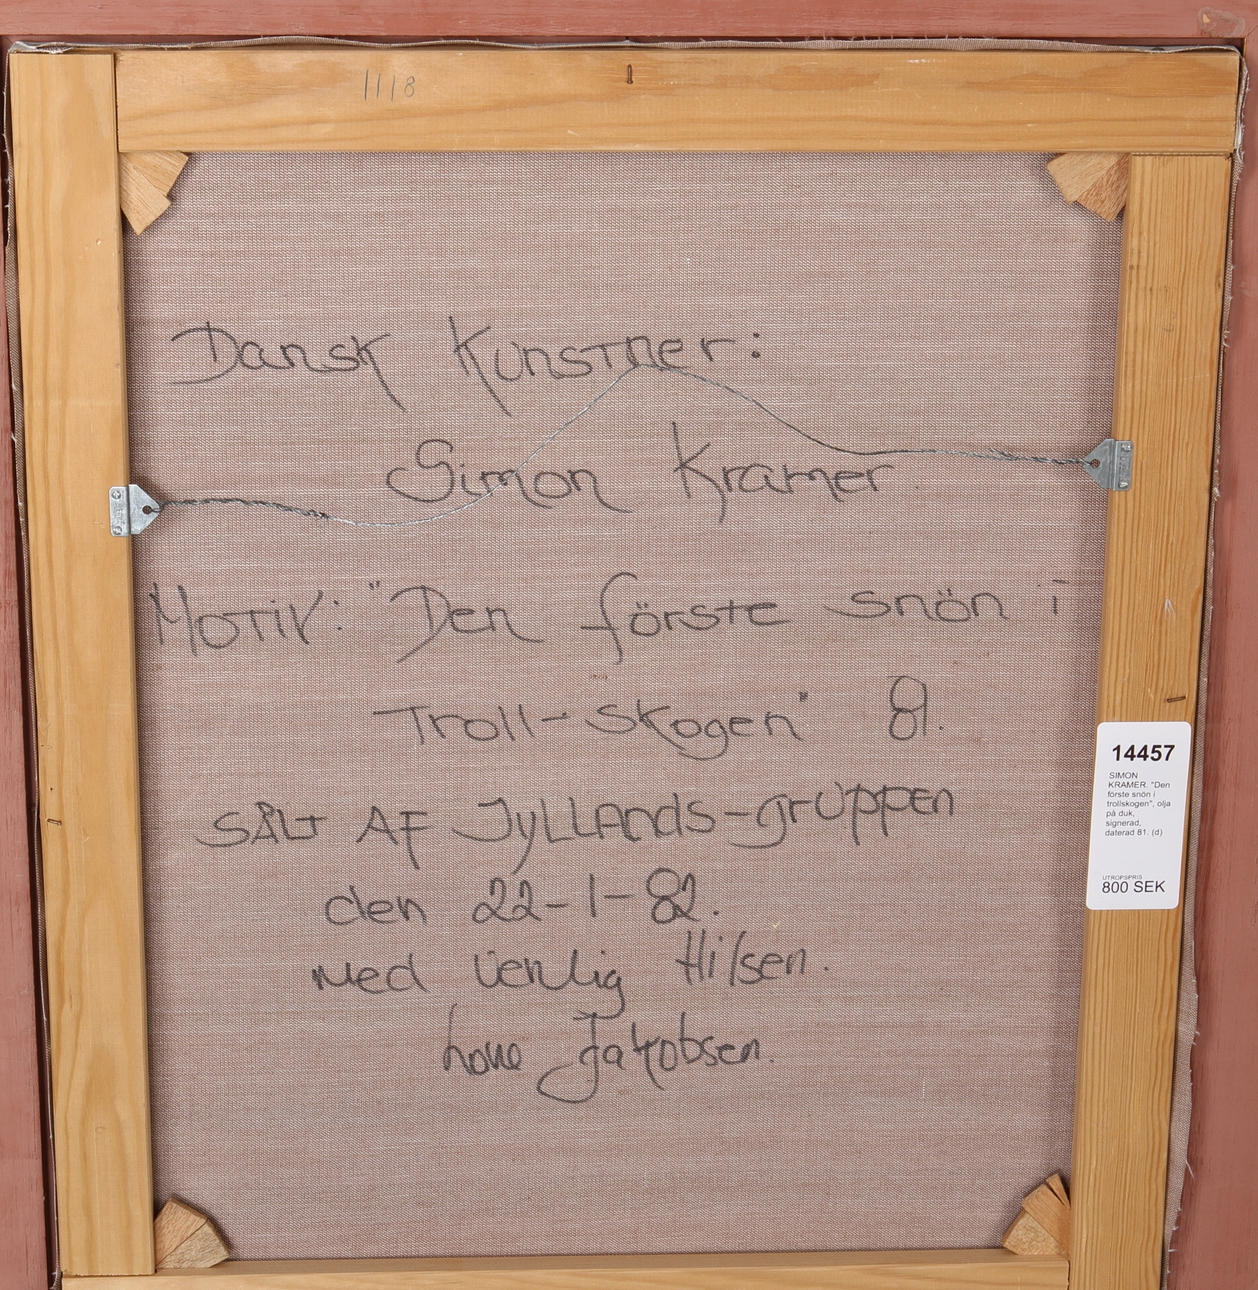 1118
Dansk Kunstner:
Simon Kramer.
Motiv: "Den förste snön i
Troll-skogen" 81.
SÅLT AF JYLLANDS-gruppen
den 22-1-82.
med venlig Hilsen.
Lone Jakobsen.
14457
SIMON
KRAMER. "Den
förste snön i
trollskogen", olja
på duk,
signerad,
daterad 81. (d)
UTROPSPRIS
800 SEK